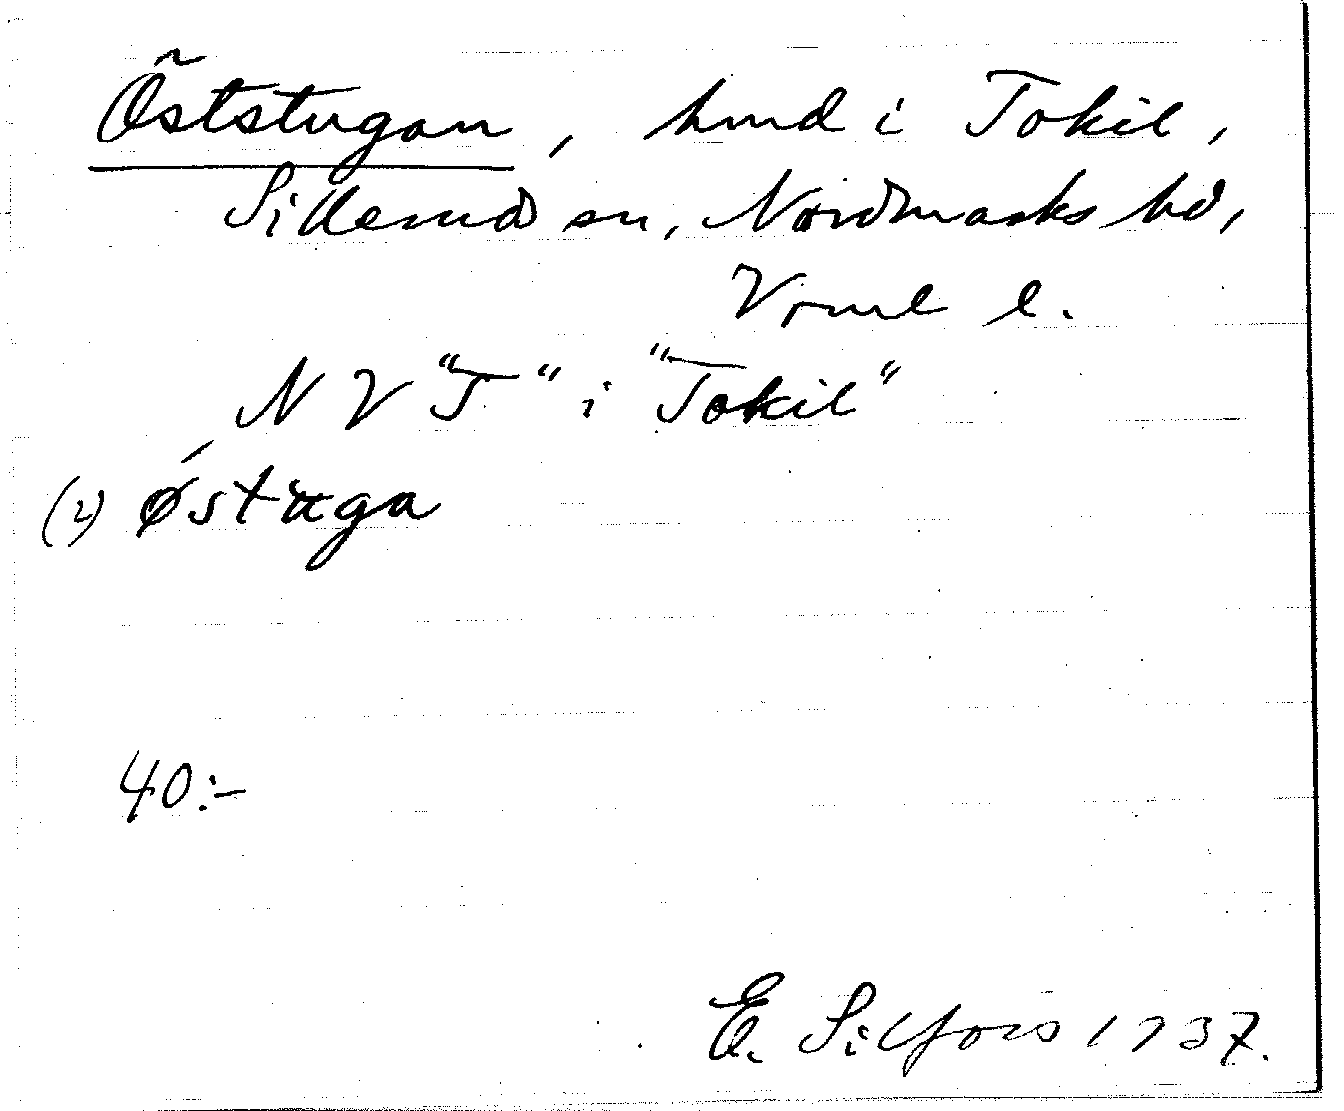 Öststugan, hmd i Tokil,
Sillerud sn, Nordmarks hd,
Vrml l.
NV "T" i "Tokil"
(2) østuga
40:-
E. Silfors 1937.